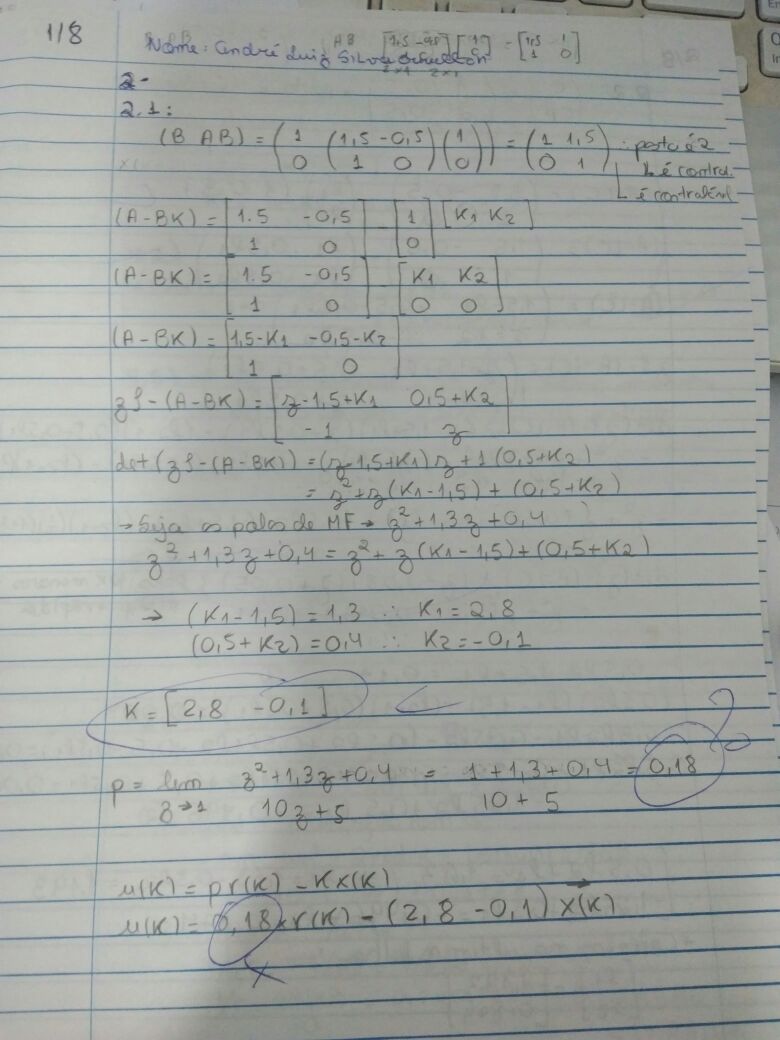 1/8
Nome: André Luiz Silva
AB [1,5 -0,5] [1] = [1,5 1]
[1 0]
2x1
2-
2.1:
(B AB) = (1 (1,5 -0,5) (1)) = (1 1,5) : posto é 2
0 1 0 0 0 1 é contro.
é controlável
(A-BK) = [1.5 -0,5] - [1] [K1 K2]
1 0 0
(A-BK) = [1.5 -0,5] - [K1 K2]
1 0 0 0
(A-BK) = [1,5-K1 -0,5-K2]
1 0
zI-(A-BK) = [z-1,5+K1 0,5+K2]
-1 z
det(zI-(A-BK)) = (z-1,5+K1)z+1(0,5+K2)
= z²+z(K1-1,5)+(0,5+K2)
→ Seja os polos de MF → z²+1,3z+0,4
z²+1,3z+0,4 = z²+z(K1-1,5)+(0,5+K2)
→ (K1-1,5)=1,3 ∴ K1=2,8
(0,5+K2)=0,4 ∴ K2=-0,1
K=[2,8 -0,1]
p = lim z²+1,3z+0,4 = 1+1,3+0,4 = 0,18 ?
z→1 10z+5 10+5
u(K) = pr(K) - Kx(K)
u(K) = 0,18*r(K) - (2,8 -0,1) x(K)